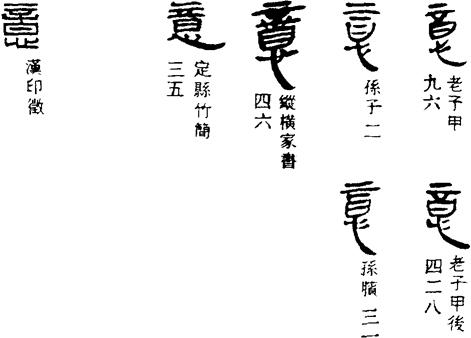 意
老子甲
九六
意
老子甲後
四二八
意
孫子二
意
孫臏三一
意
縱橫家書
四六
意
定縣竹簡
三五
意
漢印徵